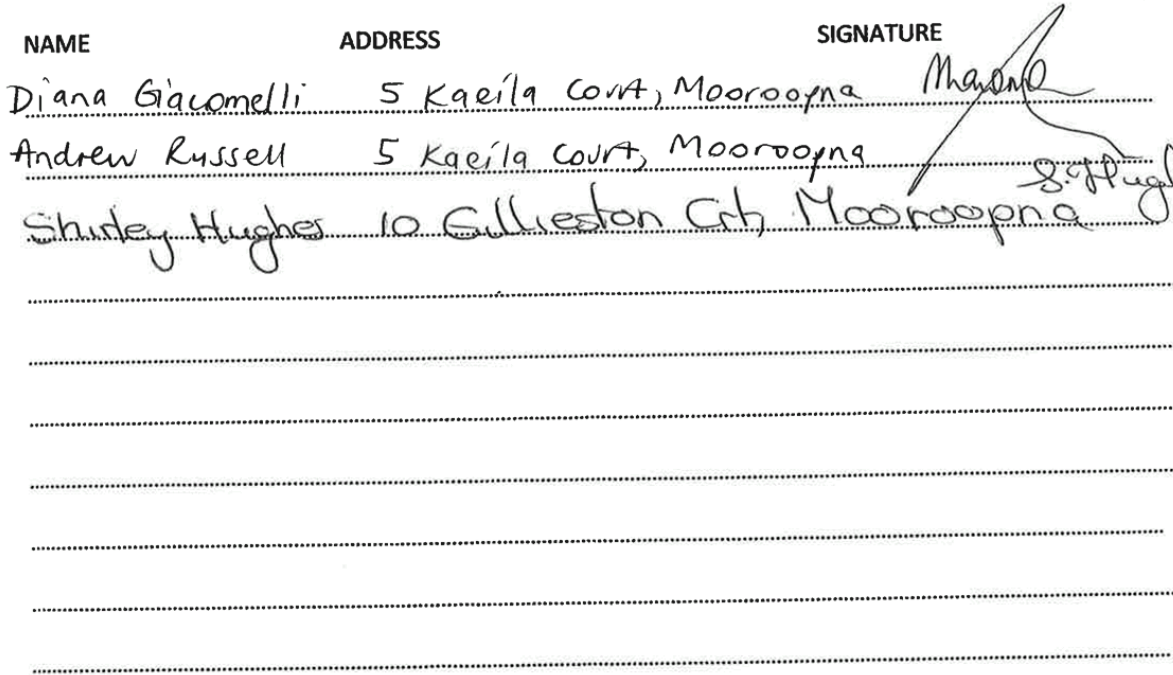 NAME ADDRESS SIGNATURE
Diana Giacomelli 5 Kaeila Court, Mooroopna
Andrew Russell 5 Kaeila Court, Mooroopna
Shirley Hughes 10 Gillieston Crt, Mooroopna S. Hugh